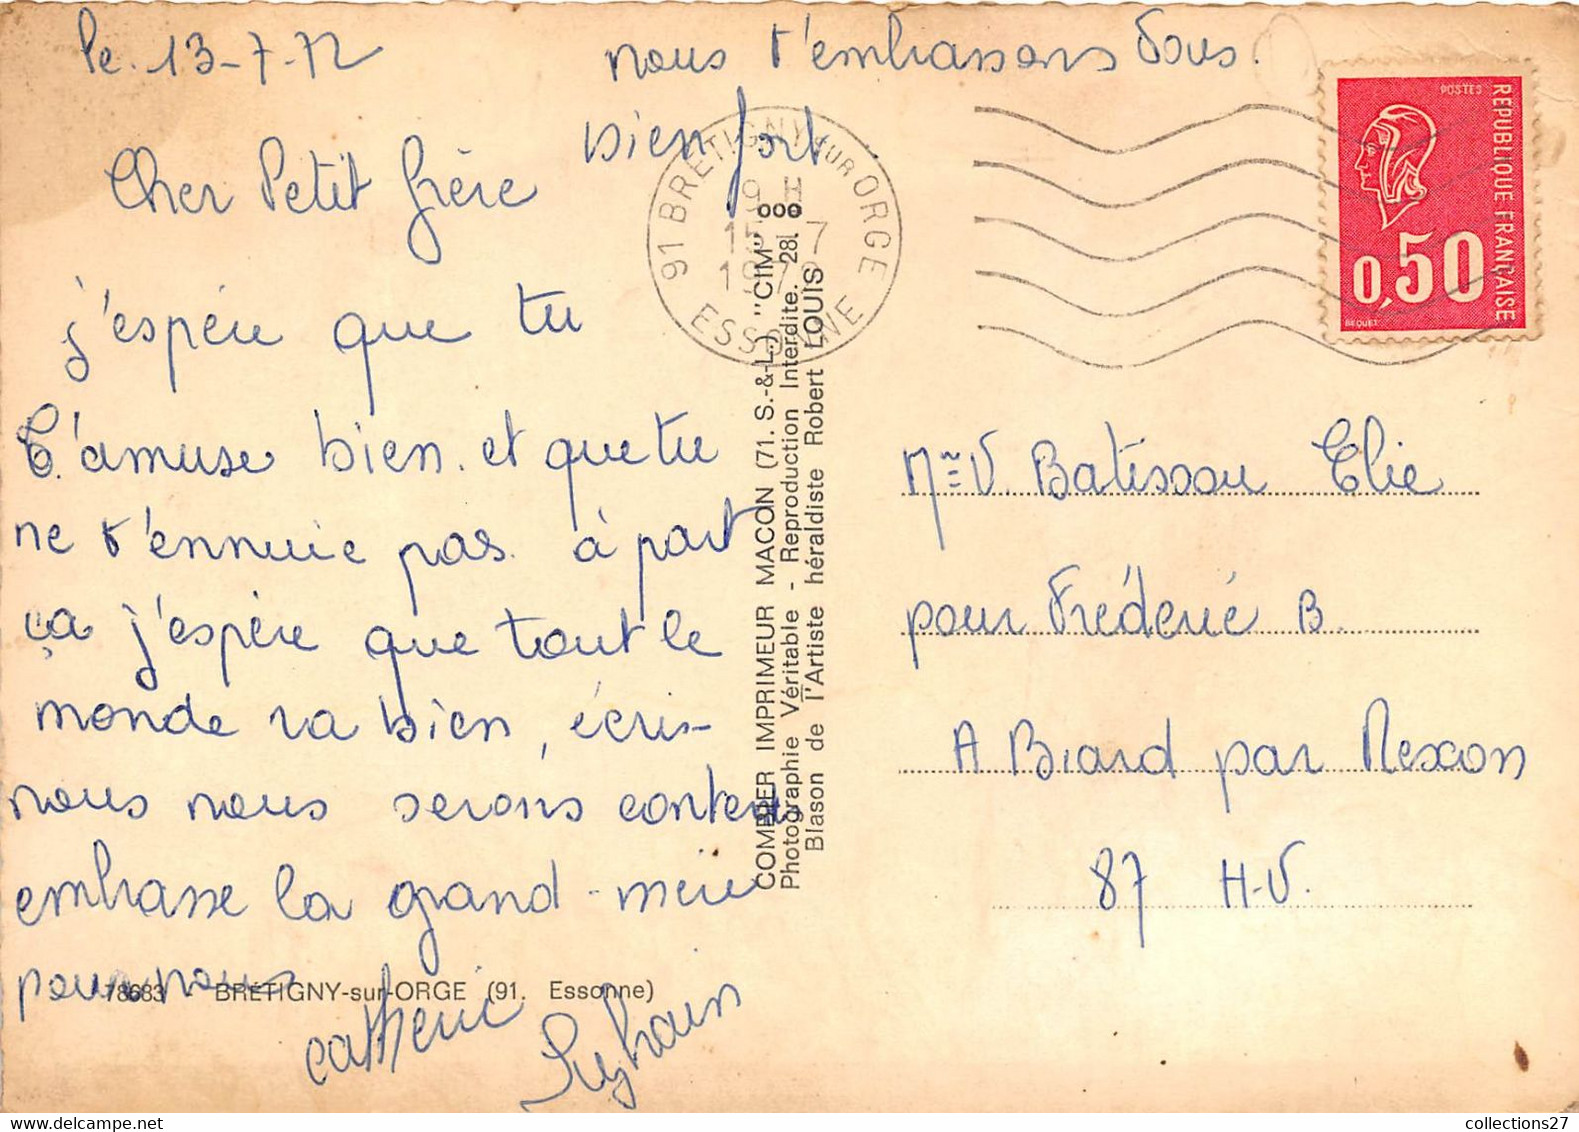 le 13-7-72
Cher Petit frère
j'espère que tu
t'amuse bien. et que tu
ne t'ennuie pas. à part
ça j'espère que tout le
monde va bien, écris-
nous nous serons contents
embrasse la grand-mère
pour nous
catherine
Sylvain
nous t'embrassons tous
bien fort
78683 - BRÉTIGNY-sur-ORGE (91. Essonne)
COMBIER IMPRIMEUR MACON (71. S.-&-L.) "CIM"
Photographie Véritable - Reproduction Interdite.
Blason de l'Artiste héraldiste Robert LOUIS
91 BRETIGNY SUR ORGE
9 H
15 - 7
1972
ESSONNE
POSTES
REPUBLIQUE FRANÇAISE
0,50
BEQUET
Mme V. Batissou Elie
pour Frédéric B.
A Biard par Nexon
87 H-V.
collections27